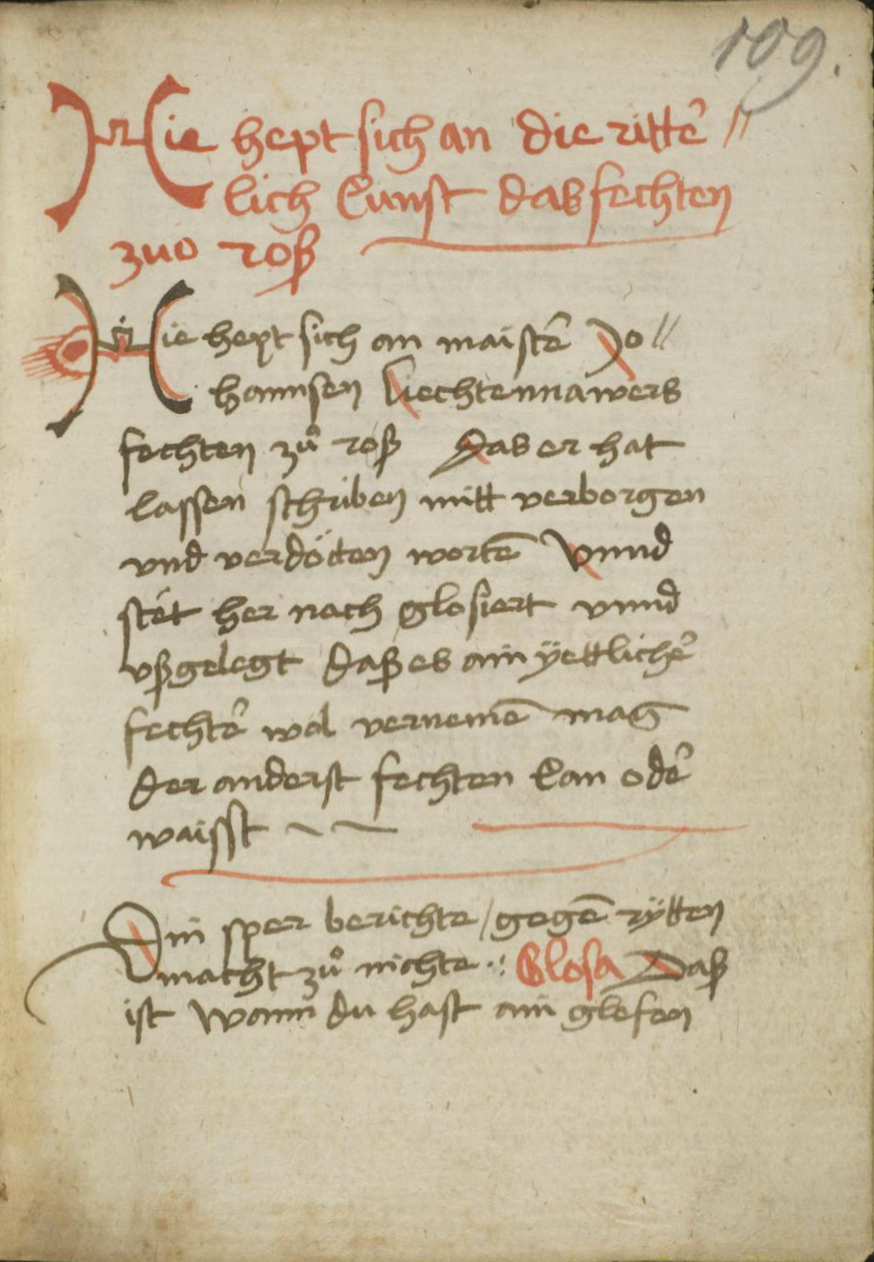 109.
Hie hept sich an die ritte᷑ //
lich kunst das fechten
zuo roß
Hie hept sich an maiste᷑ Jo //
hannsen liechtennawers
fechten zů roß Das er hat
lassen schriben mitt verborgen
vnd verdöcten wortē Vnnd
stét her nach glosiert vnnd
vßgelegt daß es ain ÿettliche᷑
fechte᷑ wol vernemē mag
der anderst fechten kan ode᷑
waisst
Din sper berichte / gegē rÿtten
macht zů nichte ·: Glosa Daß
ist Wann du hast ain glefen